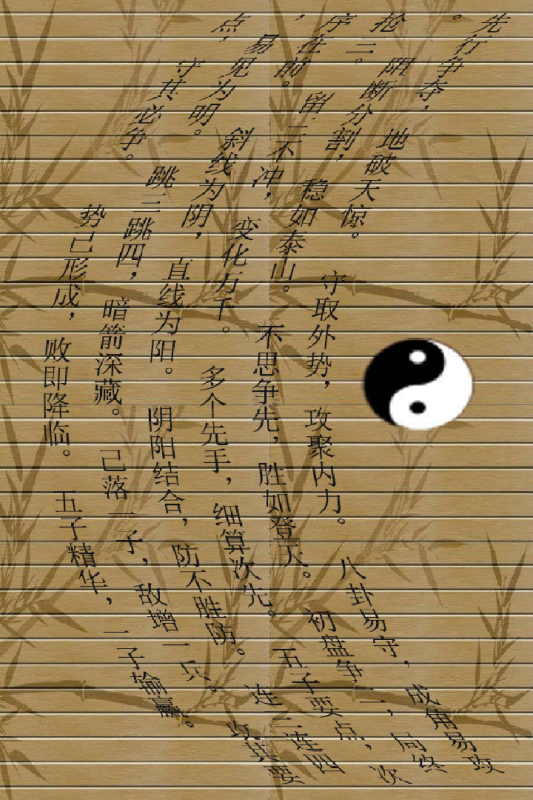 先行争夺，地破天惊。守取外势，攻聚内力。八卦易守，成角易攻
。阻断分割，稳如泰山。不思争先，胜如登天。初盘争二，局终
抢三。留三不冲，变化万千。多个先手，细算次先。五子要点，次
序在前。斜线为阴，直线为阳。阴阳结合，防不胜防。连三连四
，易见为明。跳三跳四，暗箭深藏。己落一子，敌增一兵。攻其要
点，守其必争。势己形成，败即降临。五子精华，一子输赢。